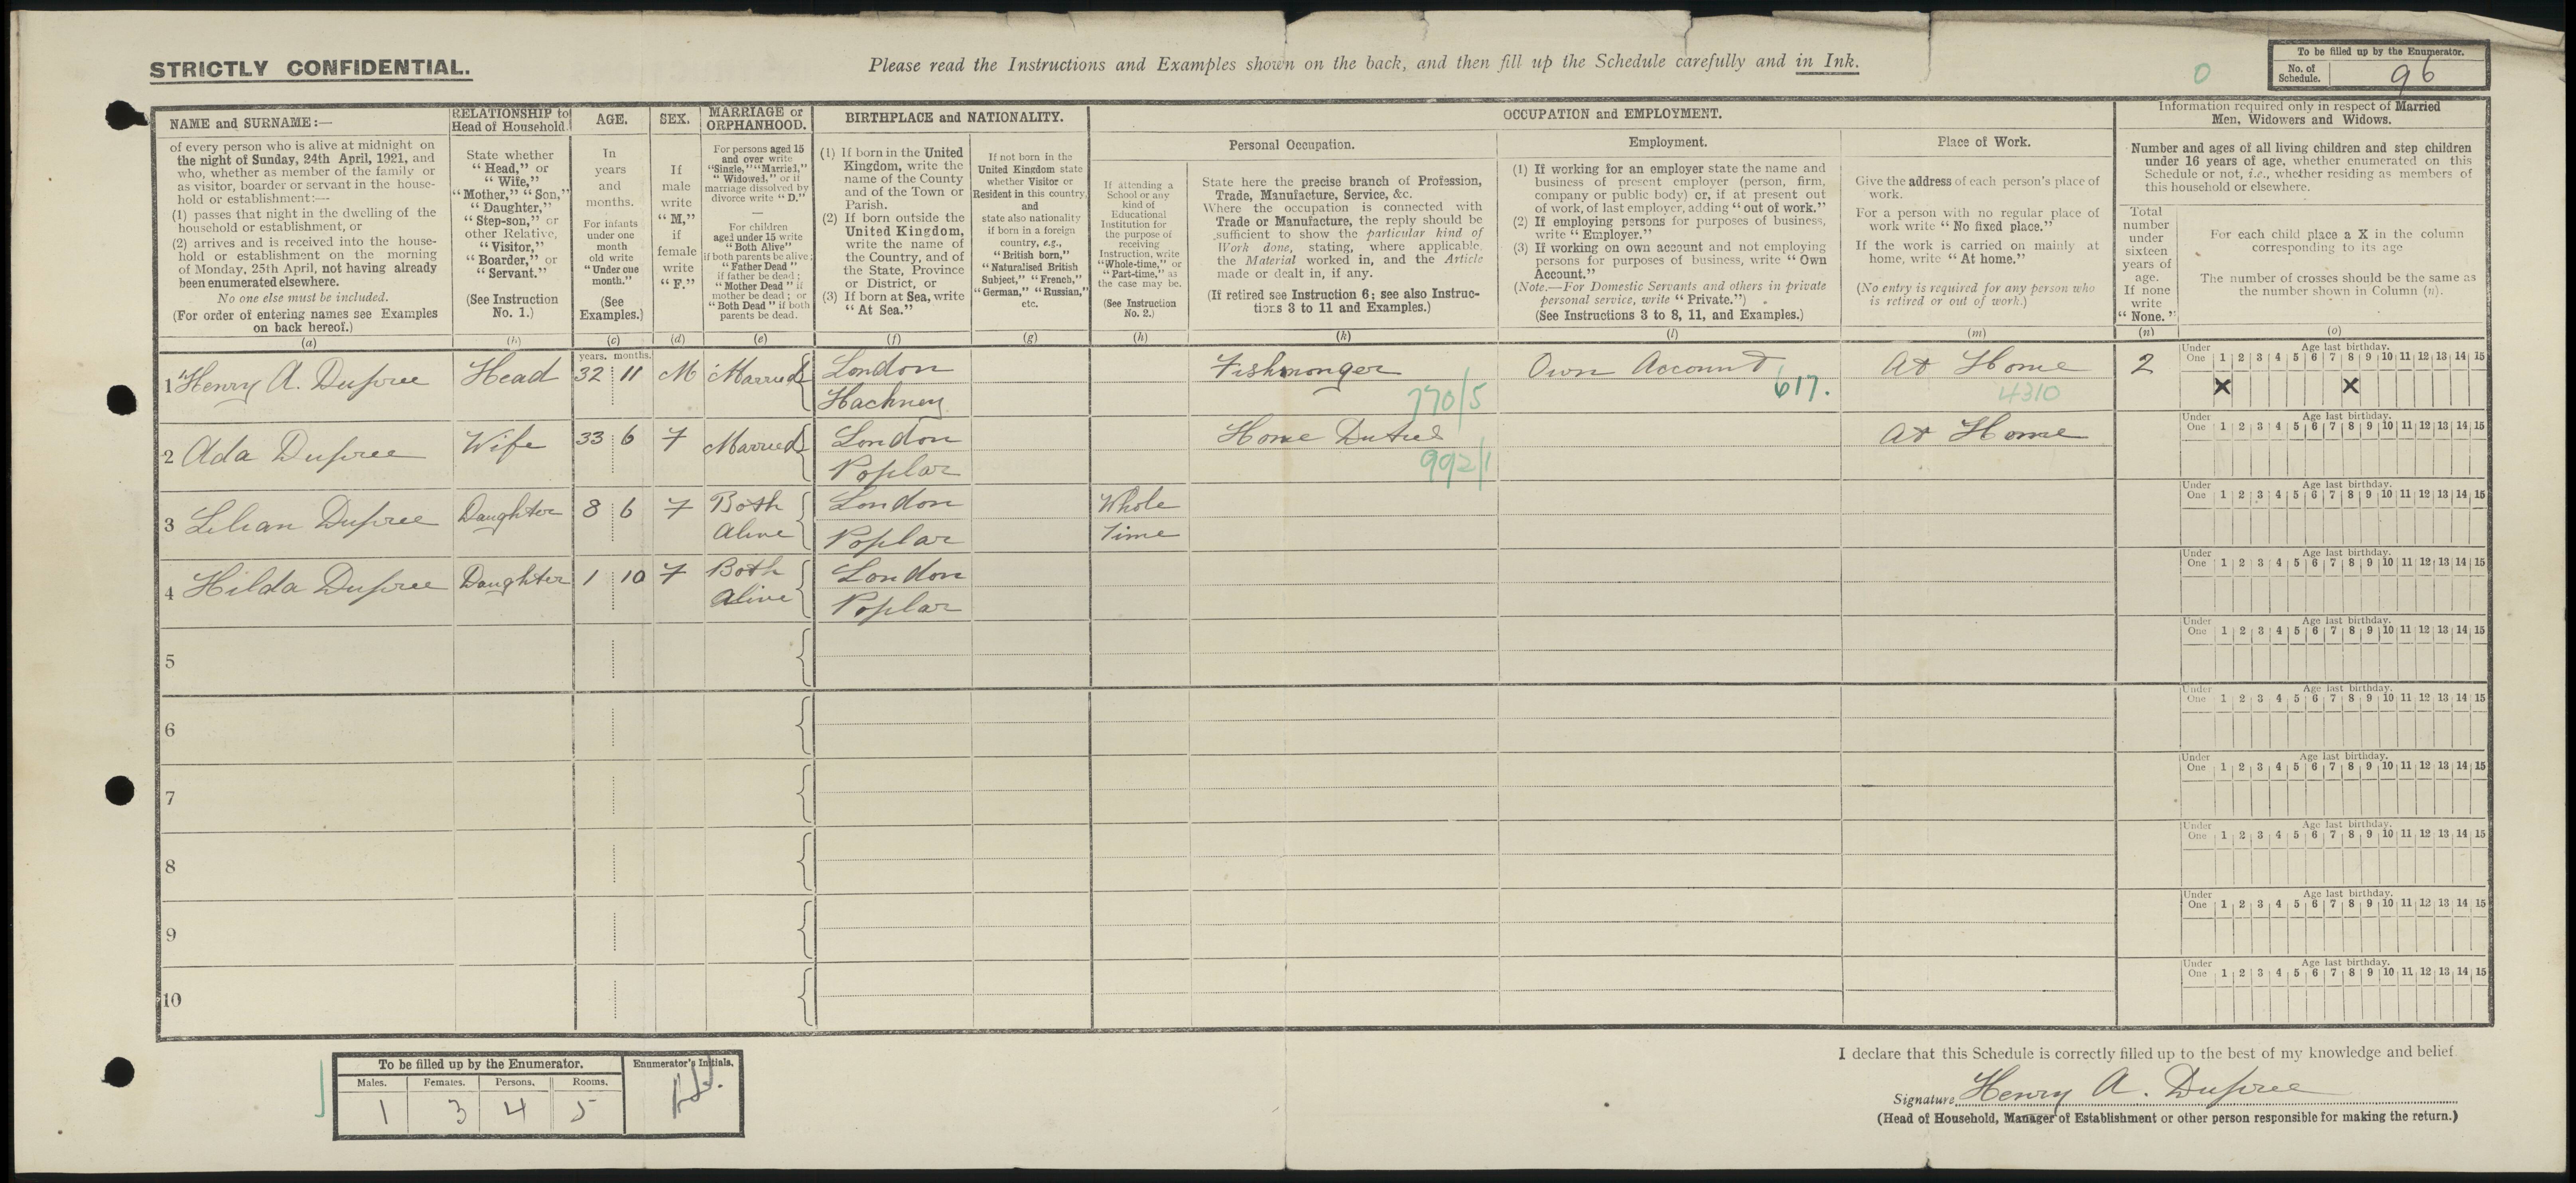 STRICTLY CONFIDENTIAL.
Please read the Instructions and Examples shown on the back, and then fill up the Schedule carefully and in Ink.
0
To be filled up by the Enumerator.
No. of Schedule. 96
NAME and SURNAME:—
of every person who is alive at midnight on
the night of Sunday, 24th April, 1921, and
who, whether as member of the family or
as visitor, boarder or servant in the house-
hold or establishment:—
(1) passes that night in the dwelling of the
household or establishment, or
(2) arrives and is received into the house-
hold or establishment on the morning
of Monday, 25th April, not having already
been enumerated elsewhere.
No one else must be included.
(For order of entering names see Examples
on back hereof.)
(a)
RELATIONSHIP to
Head of Household.
State whether
"Head," or
"Wife,"
"Mother," "Son,"
"Daughter,"
"Step-son," or
other Relative,
"Visitor,"
"Boarder," or
"Servant."
(See Instruction
No. 1.)
(b)
AGE.
In
years
and
months.
For infants
under one
month
old write
"Under one
month."
(See
Examples.)
(c)
SEX.
If
male
write
"M,"
if
female
write
"F."
(d)
MARRIAGE or
ORPHANHOOD.
For persons aged 15
and over write
"Single," "Married,"
"Widowed," or if
marriage dissolved by
divorce write "D."
—
For children
aged under 15 write
"Both Alive"
if both parents be alive;
"Father Dead"
if father be dead;
"Mother Dead" if
mother be dead; or
"Both Dead" if both
parents be dead.
(e)
BIRTHPLACE and NATIONALITY.
(1) If born in the United
Kingdom, write the
name of the County
and of the Town or
Parish.
(2) If born outside the
United Kingdom,
write the name of
the Country, and of
the State, Province
or District, or
(3) If born at Sea, write
"At Sea."
(f)
If not born in the
United Kingdom state
whether Visitor or
Resident in this country,
and
state also nationality
if born in a foreign
country, e.g.,
"British born,"
"Naturalised British
Subject," "French,"
"German," "Russian,"
etc.
(g)
OCCUPATION and EMPLOYMENT.
If attending a
School or any
kind of
Educational
Institution for
the purpose of
receiving
Instruction, write
"Whole-time," or
"Part-time," as
the case may be.
(See Instruction
No. 2.)
(h)
Personal Occupation.
State here the precise branch of Profession,
Trade, Manufacture, Service, &c.
Where the occupation is connected with
Trade or Manufacture, the reply should be
sufficient to show the particular kind of
Work done, stating, where applicable,
the Material worked in, and the Article
made or dealt in, if any.
(If retired see Instruction 6; see also Instruc-
tions 3 to 11 and Examples.)
(k)
Employment.
(1) If working for an employer state the name and
business of present employer (person, firm,
company or public body) or, if at present out
of work, of last employer, adding "out of work."
(2) If employing persons for purposes of business,
write "Employer."
(3) If working on own account and not employing
persons for purposes of business, write "Own
Account."
(Note.—For Domestic Servants and others in private
personal service, write "Private.")
(See Instructions 3 to 8, 11, and Examples.)
(l)
Place of Work.
Give the address of each person's place of
work.
For a person with no regular place of
work write "No fixed place."
If the work is carried on mainly at
home, write "At home."
(No entry is required for any person who
is retired or out of work.)
(m)
Information required only in respect of Married
Men, Widowers and Widows.
Number and ages of all living children and step children
under 16 years of age, whether enumerated on this
Schedule or not, i.e., whether residing as members of
this household or elsewhere.
Total
number
under
sixteen
years of
age.
If none
write
"None."
(n)
For each child place a X in the column
corresponding to its age
The number of crosses should be the same as
the number shown in Column (n).
(o)
years. months.
Under One Age last birthday. 1 2 3 4 5 6 7 8 9 10 11 12 13 14 15
1 Henry A. Dupree Head 32 11 M Married London Hackney Fishmonger 770/5 Own Account 617. At Home 4310 2 X X
Under One Age last birthday. 1 2 3 4 5 6 7 8 9 10 11 12 13 14 15
2 Ada Dupree Wife 33 6 F Married London Poplar Home Duties 992/1 At Home
Under One Age last birthday. 1 2 3 4 5 6 7 8 9 10 11 12 13 14 15
3 Lilian Dupree Daughter 8 6 F Both Alive London Poplar Whole Time
Under One Age last birthday. 1 2 3 4 5 6 7 8 9 10 11 12 13 14 15
4 Hilda Dupree Daughter 1 10 F Both Alive London Poplar
Under One Age last birthday. 1 2 3 4 5 6 7 8 9 10 11 12 13 14 15
5
Under One Age last birthday. 1 2 3 4 5 6 7 8 9 10 11 12 13 14 15
6
Under One Age last birthday. 1 2 3 4 5 6 7 8 9 10 11 12 13 14 15
7
Under One Age last birthday. 1 2 3 4 5 6 7 8 9 10 11 12 13 14 15
8
Under One Age last birthday. 1 2 3 4 5 6 7 8 9 10 11 12 13 14 15
9
Under One Age last birthday. 1 2 3 4 5 6 7 8 9 10 11 12 13 14 15
10
To be filled up by the Enumerator. Enumerator's Initials.
Males. Females. Persons. Rooms.
1 3 4 5
I declare that this Schedule is correctly filled up to the best of my knowledge and belief
Signature Henry A. Dupree
(Head of Household, Manager of Establishment or other person responsible for making the return.)